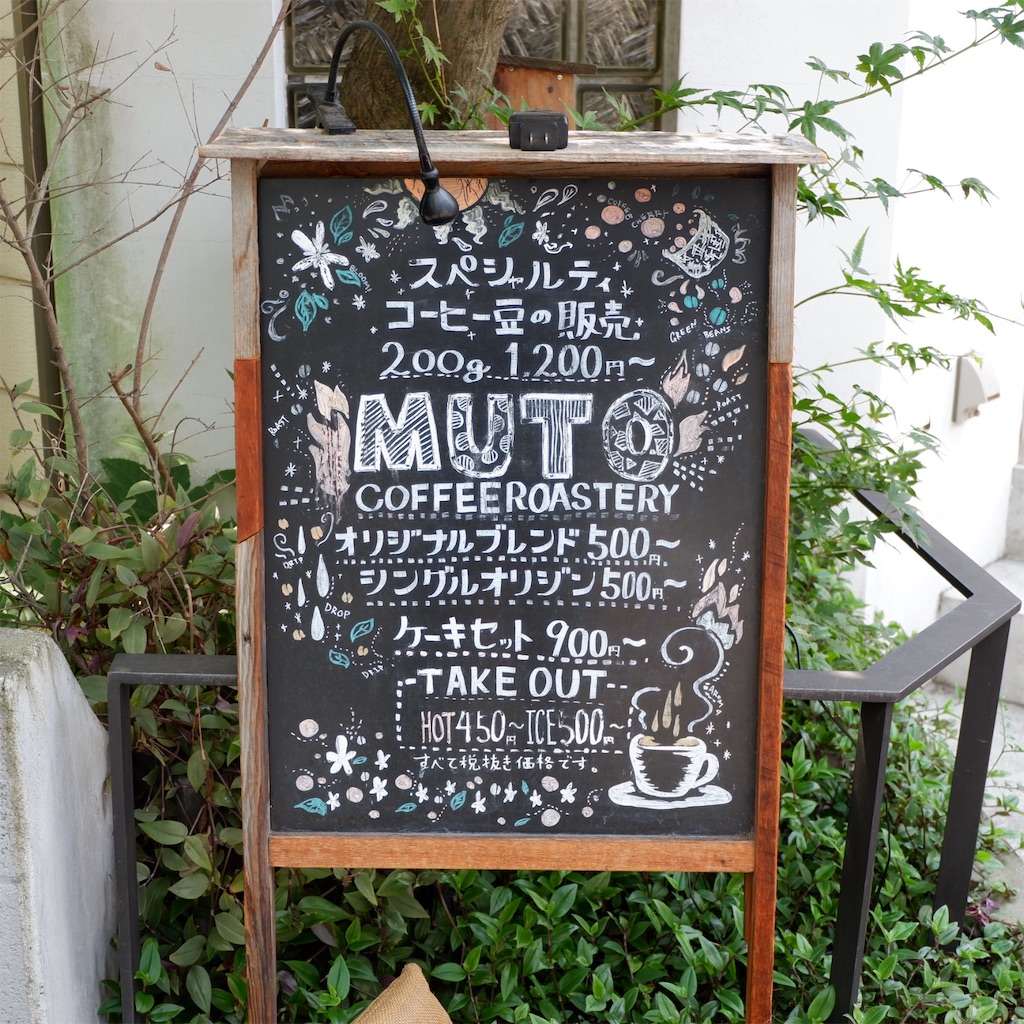 COFFEE CHERRY
BLOOM
スペシャルティ
コーヒー豆の販売
GREEN BEANS
200g 1,200円~
MUTO
ROAST
ROAST
COFFEE ROASTERY
オリジナルブレンド 500円~
シングルオリジン 500円~
DRIP
DROP
ケーキセット 900円~
TAKE OUT
AROMA
HOT 450円~ ICE 500円~
すべて税抜き価格です。